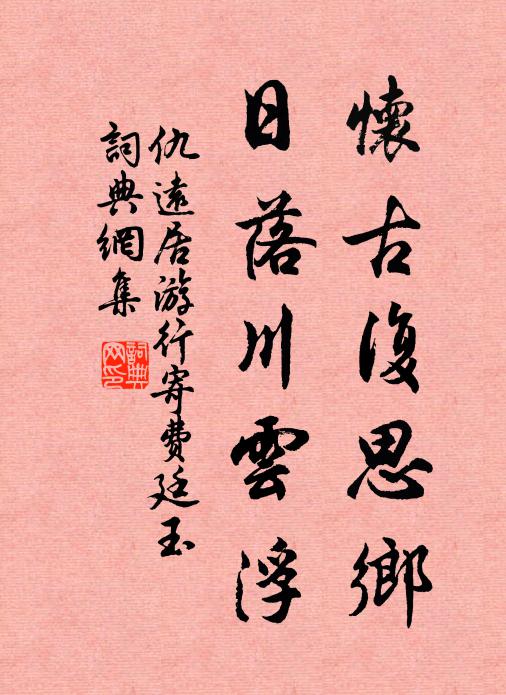 懷古復思鄉
日落川雲浮
仇遠居游行寄費廷玉
詞典網集
詞典網印